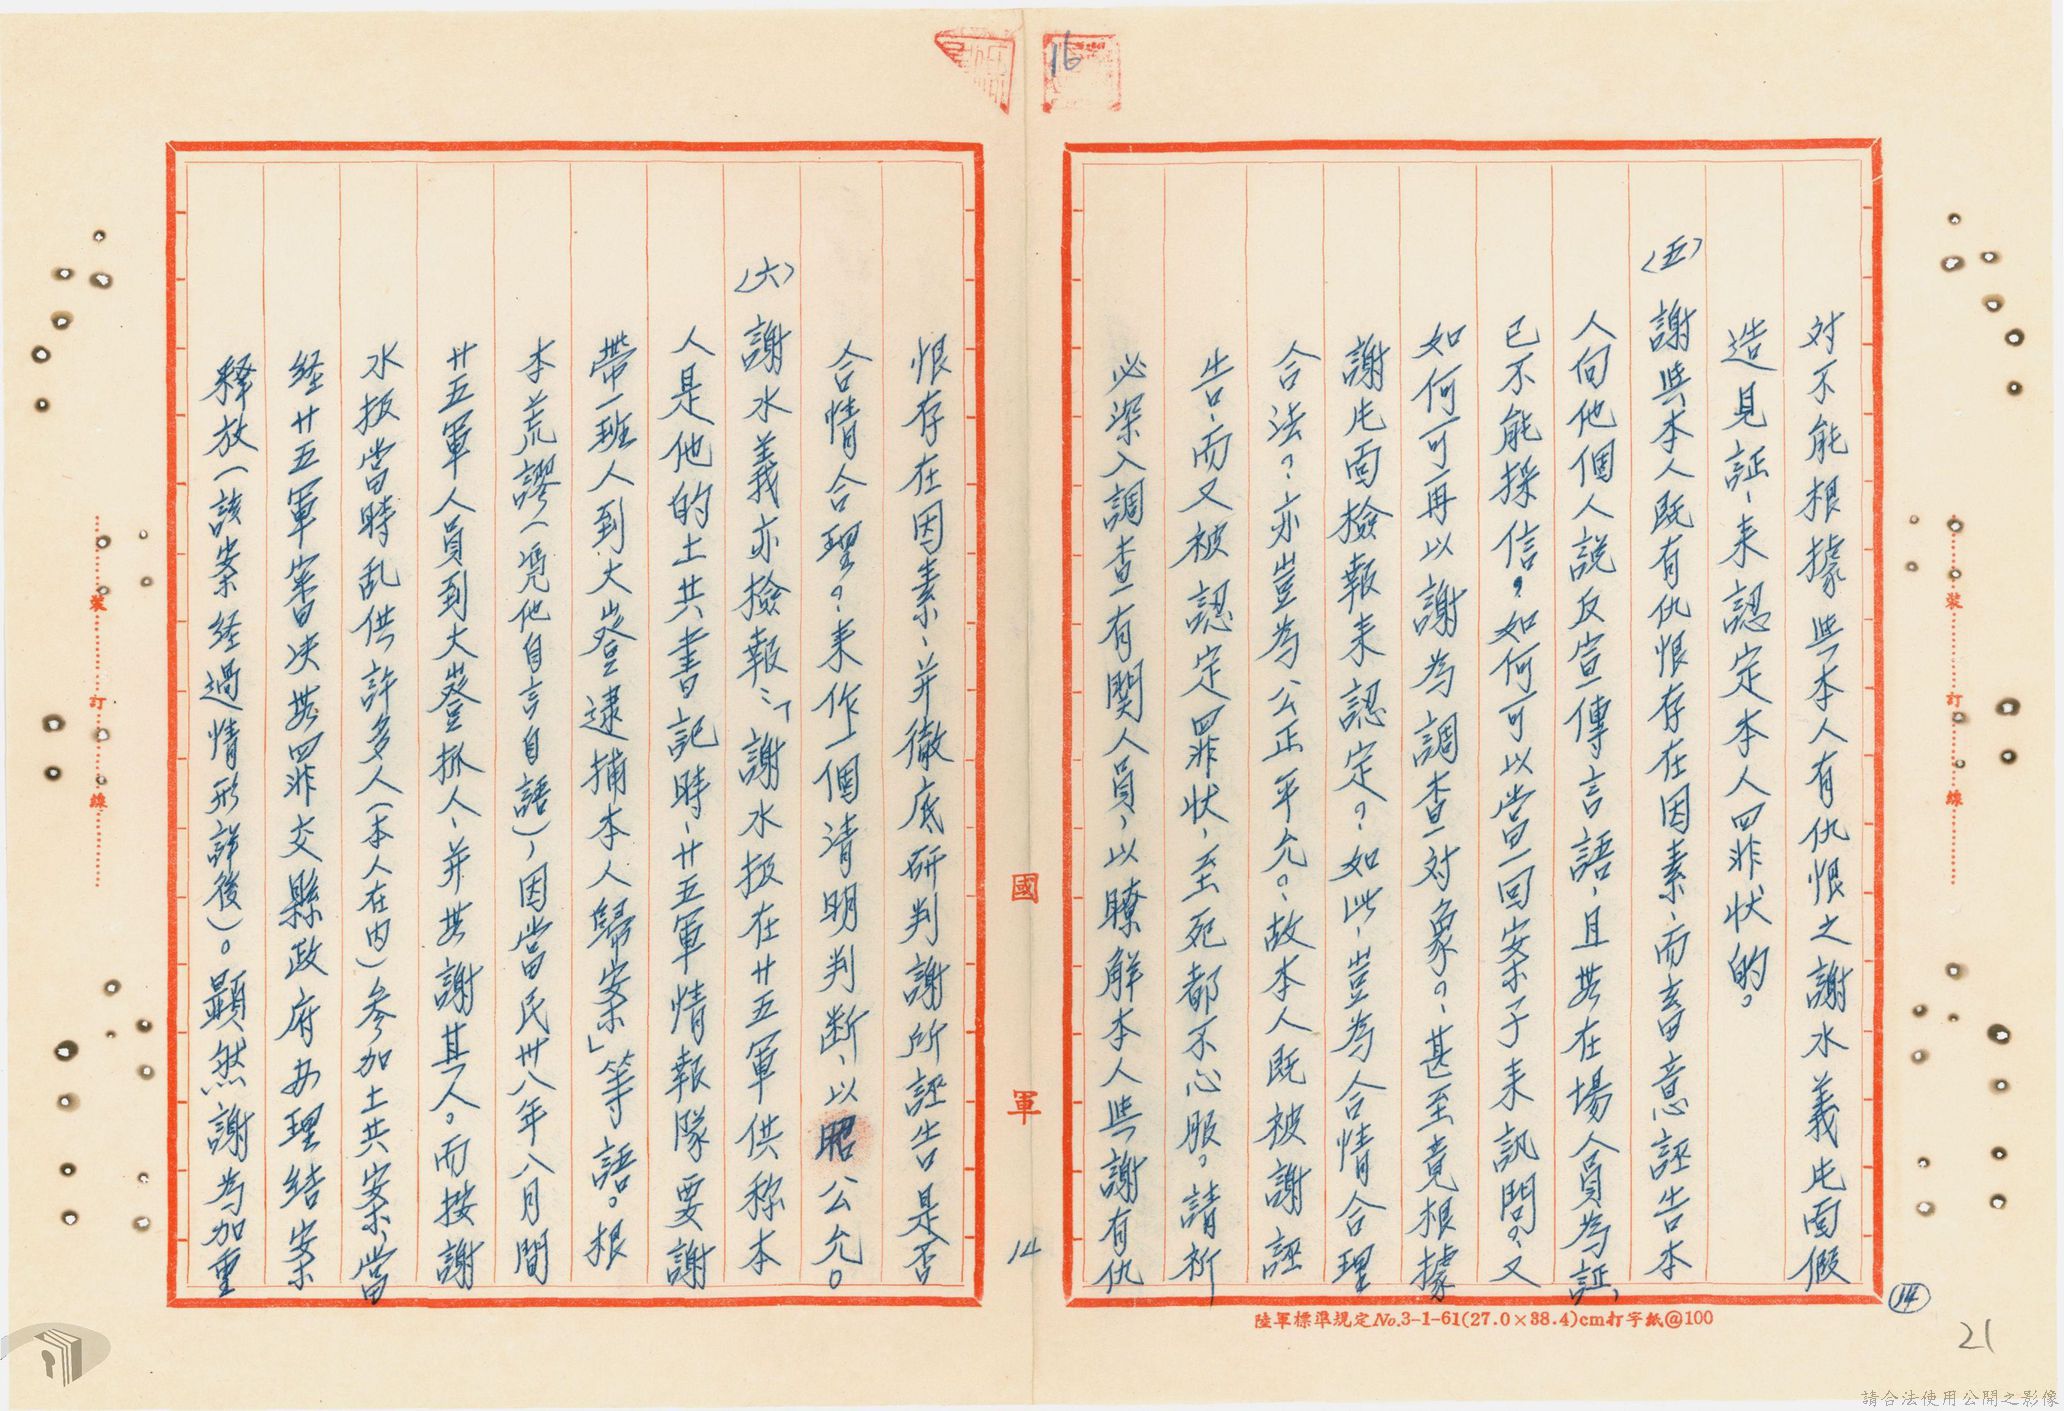 16
對不能根據與本人有仇恨之謝水義片面假
造見証、来認定本人罪状的。
(五)謝與本人既有仇恨存在因素、而蓄意誣告本
人向他個人說反宣傳言語，且無在場人員為証，
已不能採信，如何可以當一回案子来訊問？又
如何可再以謝為調查一對象？甚至竟根據
謝片面檢報来認定？如此、豈為合情合理
合法？亦豈為公正平允？故本人既被謝誣
告、而又被認定罪状、至死都不心服。請祈
必深入調查有関人員，以瞭解本人與謝有仇
恨存在因素、并徹底研判謝所誣告是否
合情合理？来作一個清明判断、以昭公允。
(六)謝水義亦檢報：「謝水扱在廿五軍供称本
人是他的土共書記時、廿五軍情報隊要謝
帶一班人到大嶝逮捕本人歸案」等語。根
本荒謬（凭他自言自語），因當民卅八年八月間
廿五軍人員到大嶝抓人、并無謝其人。而按謝
水扱當時乱供許多人（本人在内）参加土共案，當
経廿五軍審決無罪交縣政府办理结案
释放（該案経過情形詳後）。顯然謝為加重
國軍
14
14
21
裝訂線
裝訂線
陸軍標準規定No.3-1-61(27.0×38.4)cm打字紙@100
請合法使用公開之影像